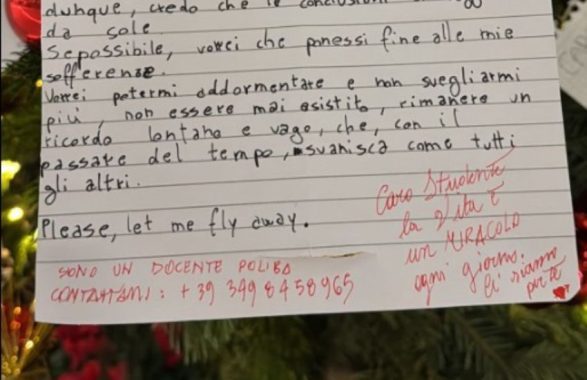 dunque, credo che le conclusioni
da sole.
Sepossibile, vorrei che ponessi fine alle mie
sofferenze.
Vorrei potermi addormentare e non svegliarmi
più, non essere mai esistito, rimanere un
ricordo lontano e vago, che, con il
passare del tempo, svanisca come tutti
gli altri.
Please, let me fly away.
SONO UN DOCENTE POLIBA
CONTATTAMI: +39 3498458965
Caro Studente
la vita è
un MIRACOLO
ogni giorno.
Ci siamo
per te